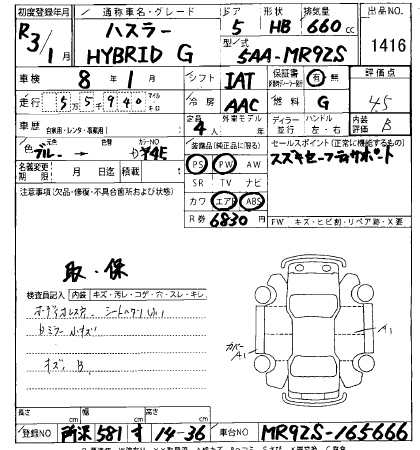 初度登録年月 通称車名・グレード ドア 形状 排気量 出品No.
R3/1月 ハスラー HYBRID G 5 HB 660cc
型式 5AA-MR92S 1416
車検 8年1月 シフト IAT 保証書 有 無 評価点
走行 55940 マイル Km 冷房 AAC 燃料 G 45
車歴 自家用・レンタ・事業用( ) 定員 4人 外車モデル 年 ディーラー 並行 ハンドル 左・右 内装 評価 B
色 元色 ブルー 色替 カラーNO 装備品(純正品に限る) セールスポイント(正常に機能するもの)
名義変更期限 月 日次 積載 PS PW AW スズキセーフティサポート
注意事項(欠品・修復・不具合箇所および状態) SR TV ナビ
カワ エアB ABS
R券 6830円 FW キズ・ヒビ割・リペア跡・X要
取・保
検査員記入 内装 キズ・汚レ・コゲ・穴・スレ・キレ
A1
カバーA1
キズ B
長さ cm 幅 cm 高さ cm
登録NO 所沢 581 す 14-36 車台NO MR92S-165666